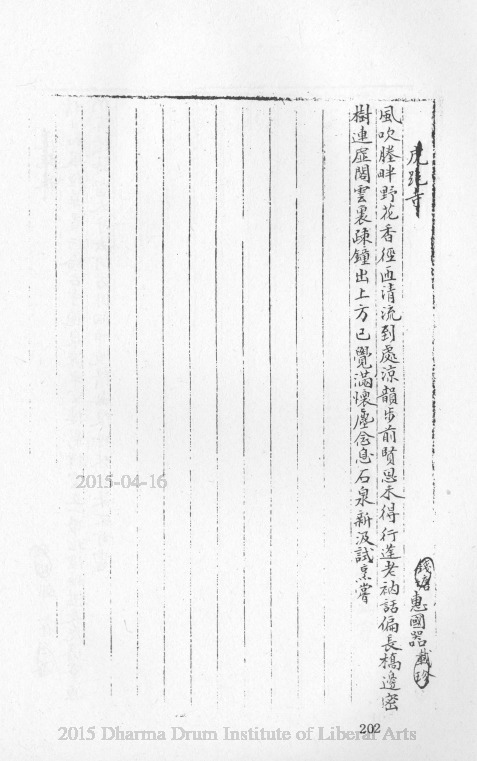 虎跑寺
錢塘惠國器載珍
風吹塍畔野花香徑面清流到處涼韻步前賢思未得行逢老衲話偏長橋邊密
樹連虛閣雲裏疎鐘出上方已覺滿懷塵念息石泉新汲試烹嘗
2015-04-16
202
2015 Dharma Drum Institute of Liberal Arts